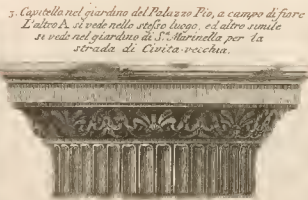 3. Capitello nel giardino del Palazzo Pio, a campo di fiore
L'altro A. si vede nello stesso luogo, ed altro simile
si vede nel giardino di S.ᵗᵃ Marinella per la
strada di Civita-vecchia.